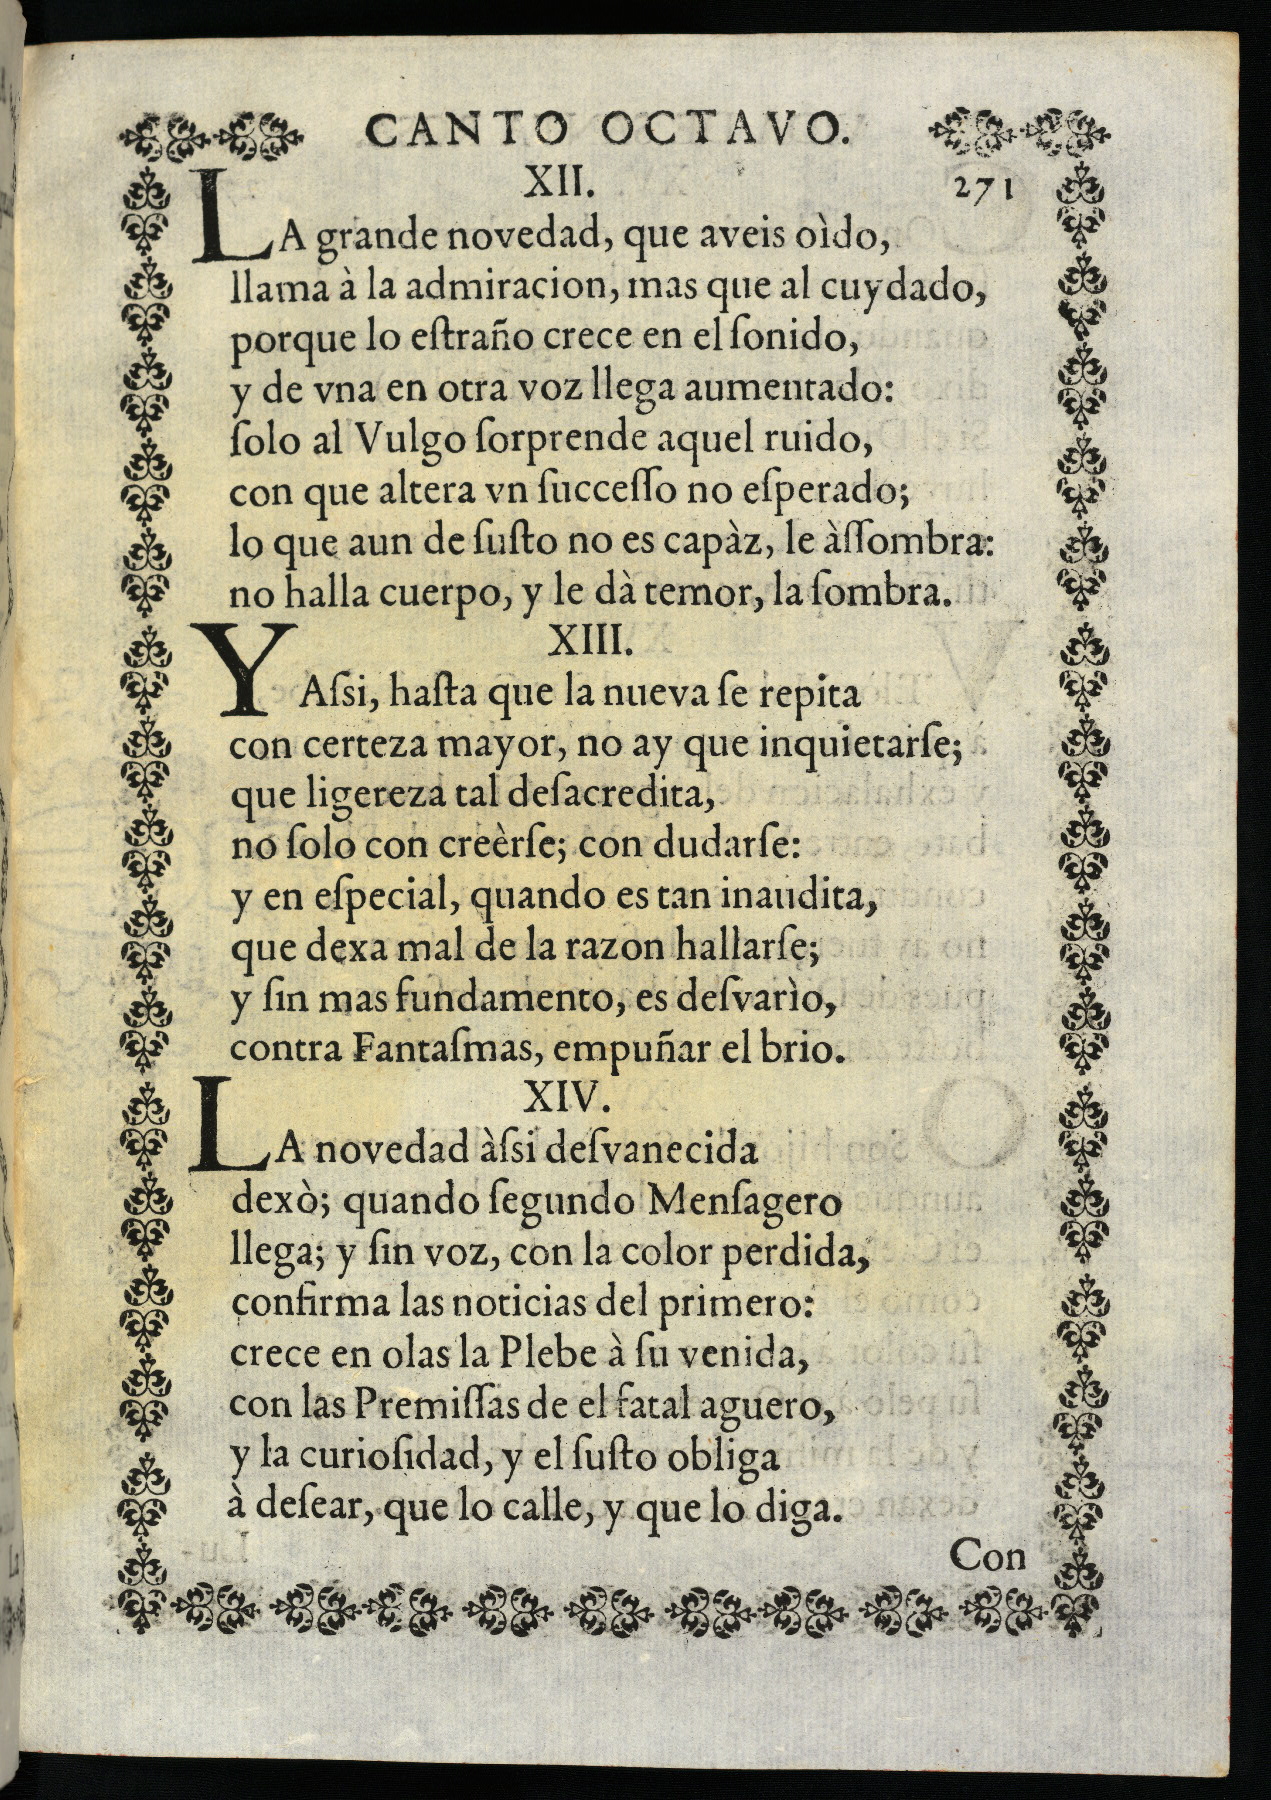 CANTO OCTAVO.
XII. 271
LA grande novedad, que aveis oìdo,
llama à la admiracion, mas que al cuydado,
porque lo eſtraño crece en el ſonido,
y de vna en otra voz llega aumentado:
ſolo al Vulgo ſorprende aquel ruido,
con que altera vn ſucceſſo no eſperado;
lo que aun de ſuſto no es capàz, le àſſombra:
no halla cuerpo, y le dà temor, la ſombra.
XIII.
Y Aſsi, haſta que la nueva ſe repita
con certeza mayor, no ay que inquietarſe;
que ligereza tal deſacredita,
no ſolo con creèrſe; con dudarſe:
y en eſpecial, quando es tan inaudita,
que dexa mal de la razon hallarſe;
y ſin mas fundamento, es deſvarìo,
contra Fantaſmas, empuñar el brio.
XIV.
LA novedad àſsi deſvanecida
dexò; quando ſegundo Menſagero
llega; y ſin voz, con la color perdida,
confirma las noticias del primero:
crece en olas la Plebe à ſu venida,
con las Premiſſas de el fatal aguero,
y la curioſidad, y el ſuſto obliga
à deſear, que lo calle, y que lo diga.
Con